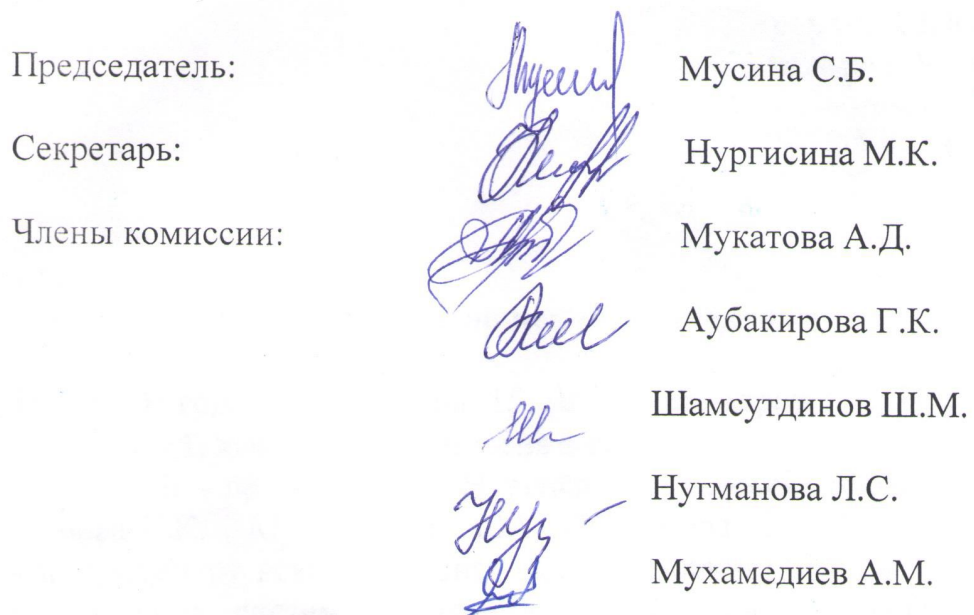 Председатель: Мусина С.Б.
Секретарь: Нургисина М.К.
Члены комиссии: Мукатова А.Д.
Аубакирова Г.К.
Шамсутдинов Ш.М.
Нугманова Л.С.
Мухамедиев А.М.